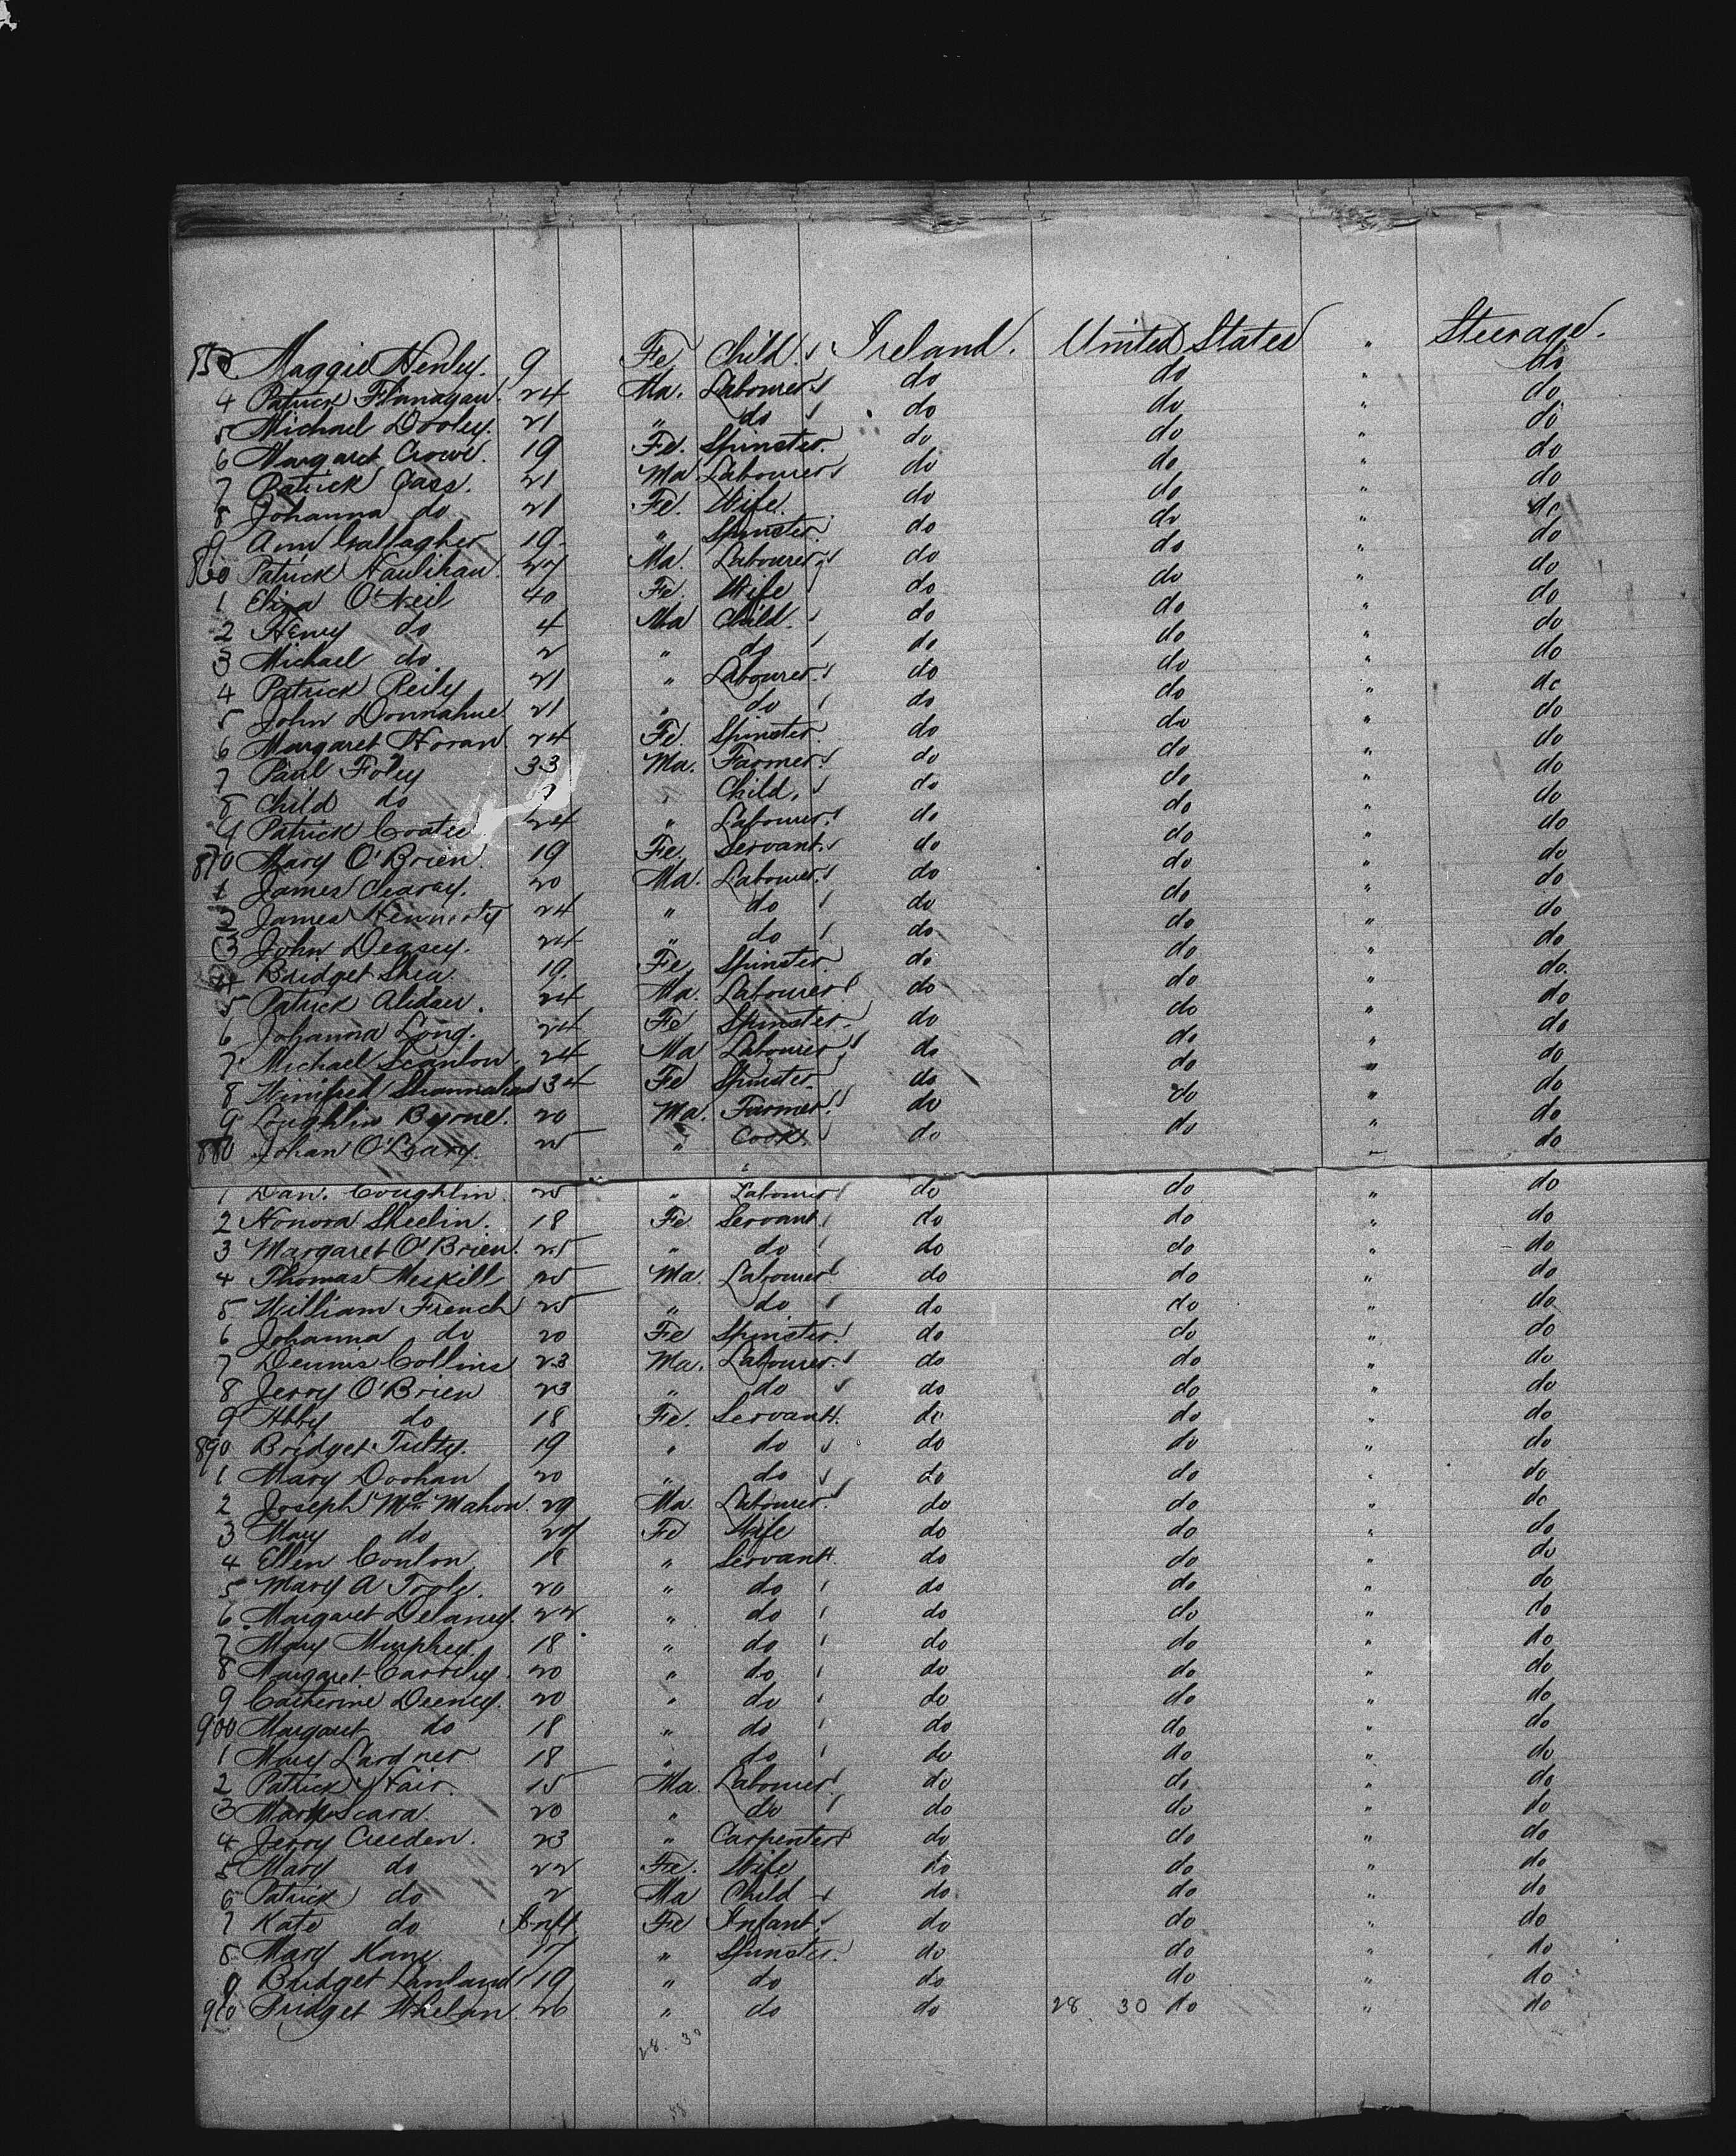 853 Maggie Henley. 9 Fe Child. Ireland. United States " Steerage.
4 Patrick Flanagan. 24 Ma. Labourer do do " do
5 Michael Dooley. 21 " do do do " do
6 Margaret Crowe. 19 Fe. Spinster. do do " do
7 Patrick Cass. 21 Ma Labourer do do " do
8 Johanna do 21 Fe. Wife. do do " do
9 Ann Gallagher 19 " Spinster. do do " do
860 Patrick Haulihan. 27 Ma. Labourer do do " do
1 Eliza O'Neil 40 Fe. Wife do do " do
2 Henry do 4 Ma Child. do do " do
3 Michael do. 2 " do do do " do
4 Patrick Reily 21 " Labourer. do do " do
5 John Donnahue 21 " do do do " do
6 Margaret Horan. 24 Fe. Spinster. do do " do
7 Paul Foley 33 Ma. Farmer. do do " do
8 Child do " Child. do do " do
9 Patrick 24 " Labourer. do do " do
870 Mary O'Brien. 19 Fe. Servant. do do " do
1 James Cleary. 20 Ma. Labourer. do do " do
2 James 24 " do do do " do
3 John Deasey. 24 " do do do " do
4 Bridget Shea. 19. Fe. Spinster. do do " do.
5 Patrick 24 Ma. Labourer. do do " do
6 Johanna Long. 24 Fe Spinster. do do " do
7 Michael Scanlon. 24 Ma Labourer do do " do
8 Winifred Shannahan 34 Fe Spinster. do do " do
9 Loughlin Byrne. 20 Ma. Farmer. do do " do
880 Johan O'Leary. 25 " Cook. do do " do
1 Dan. Coughlin. 25 " Labourer do do " do
2 Honora Sheelin. 18 Fe. Servant. do do " do
3 Margaret O'Brien. 25 " do do do " do
4 Thomas Meskill 25 Ma. Labourer do do " do
5 William French 25 " do do do " do
6 Johanna do 20 Fe Spinster. do do " do
7 Dennis Collins 23 Ma. Labourer. do do " do
8 Jerry O'Brien 23 " do do do " do
9 Abby do 18 Fe. Servant. do do " do
890 Bridget Tulty. 19 " do do do " do
1 Mary Doohan 20 " do do do " do
2 Joseph Mc Mahon. 29 Ma. Labourer. do do " do
3 Mary do 27 Fe Wife do do " do
4 Ellen Conlon. 18 " Servant. do do " do
5 Mary A Toole. 20 " do do do " do
6 Margaret Delaney. 22 " do do do " do
7 Mary Murphey. 18 " do do do " do
8 Margaret 20 " do do do " do
9 Catherine Deeney. 20 " do do do " do
900 Margaret do 18 " do do do " do
1 Mary Lardner 18 " do do do " do
2 Patrick Hair. 15 Ma. Labourer do do " do
3 Mark Scara 20 " do do do " do
4 Jerry Creeden. 23 " Carpenter do do " do
5 Mary do 22 Fe. Wife do do " do
6 Patrick do 2 Ma Child do. do " do
7 Kate do Inft Fe Infant. do do " do
8 Mary Kane 17 " Spinster. do do " do
9 Bridget 19 " do do do " do
910 Bridget Whelan. 26 " do do 28 30 do " do
28. 30
58